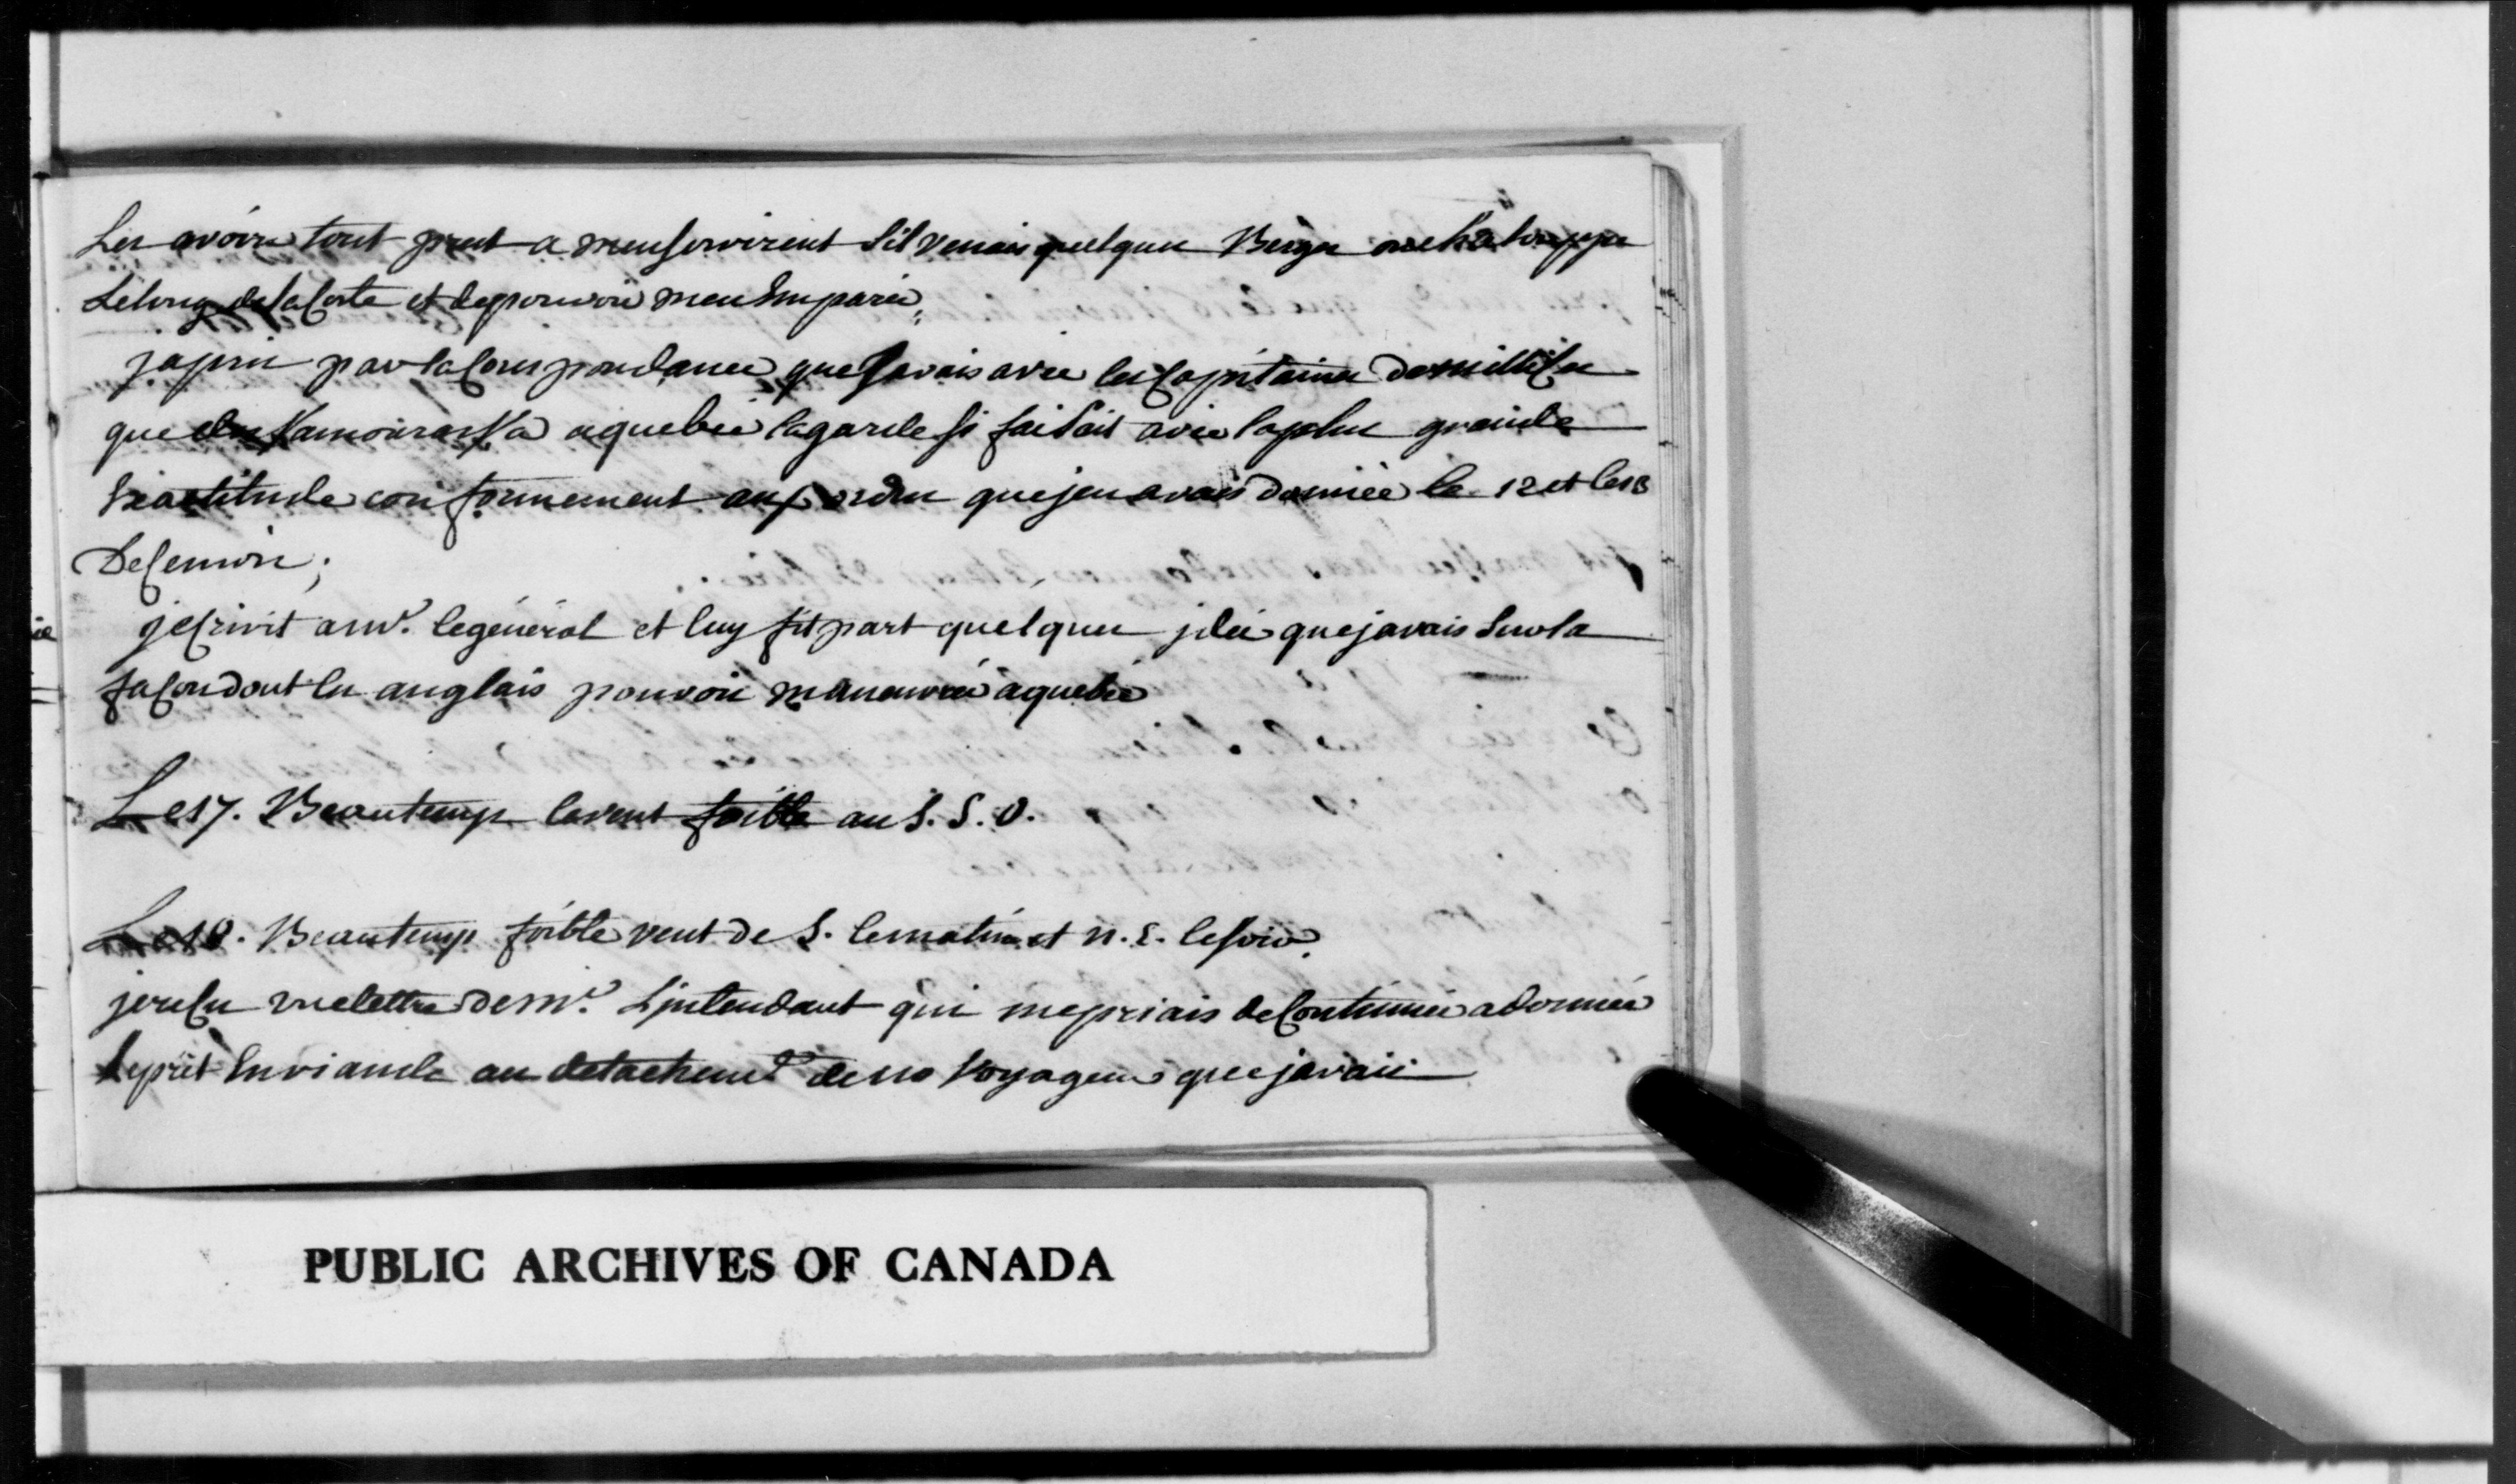 Les avoire tout prest a mensservirent Sil venais quelques Berges ou chalouppes
Le long de la Coste et de pouvoir men Emparér,
japris par la Correspondance que Javais avec les Capitaines de millices
que de Kamouraska a quebec la garde Se faisait avec la plus grande
Exactitude conformement aux ordres que jen avais donnée le 12 et le 13
De Ce mois ;
jeCrivit a mr. le général et luy fit part quelques jdée que javais Sur la
façon dont les anglais pouvoie manœuvrée a quebec
Le 17. Beau temps le vent foible au S. S. O.
Le 18. Beau temps foible vent de S. le matin et N. E. le soir,
je reçu une lettre de mr. Ljntendant qui me priais de Continuée a donnée
Le prêt En viande au detachemt. de 110 Voyageurs que javais
PUBLIC ARCHIVES OF CANADA